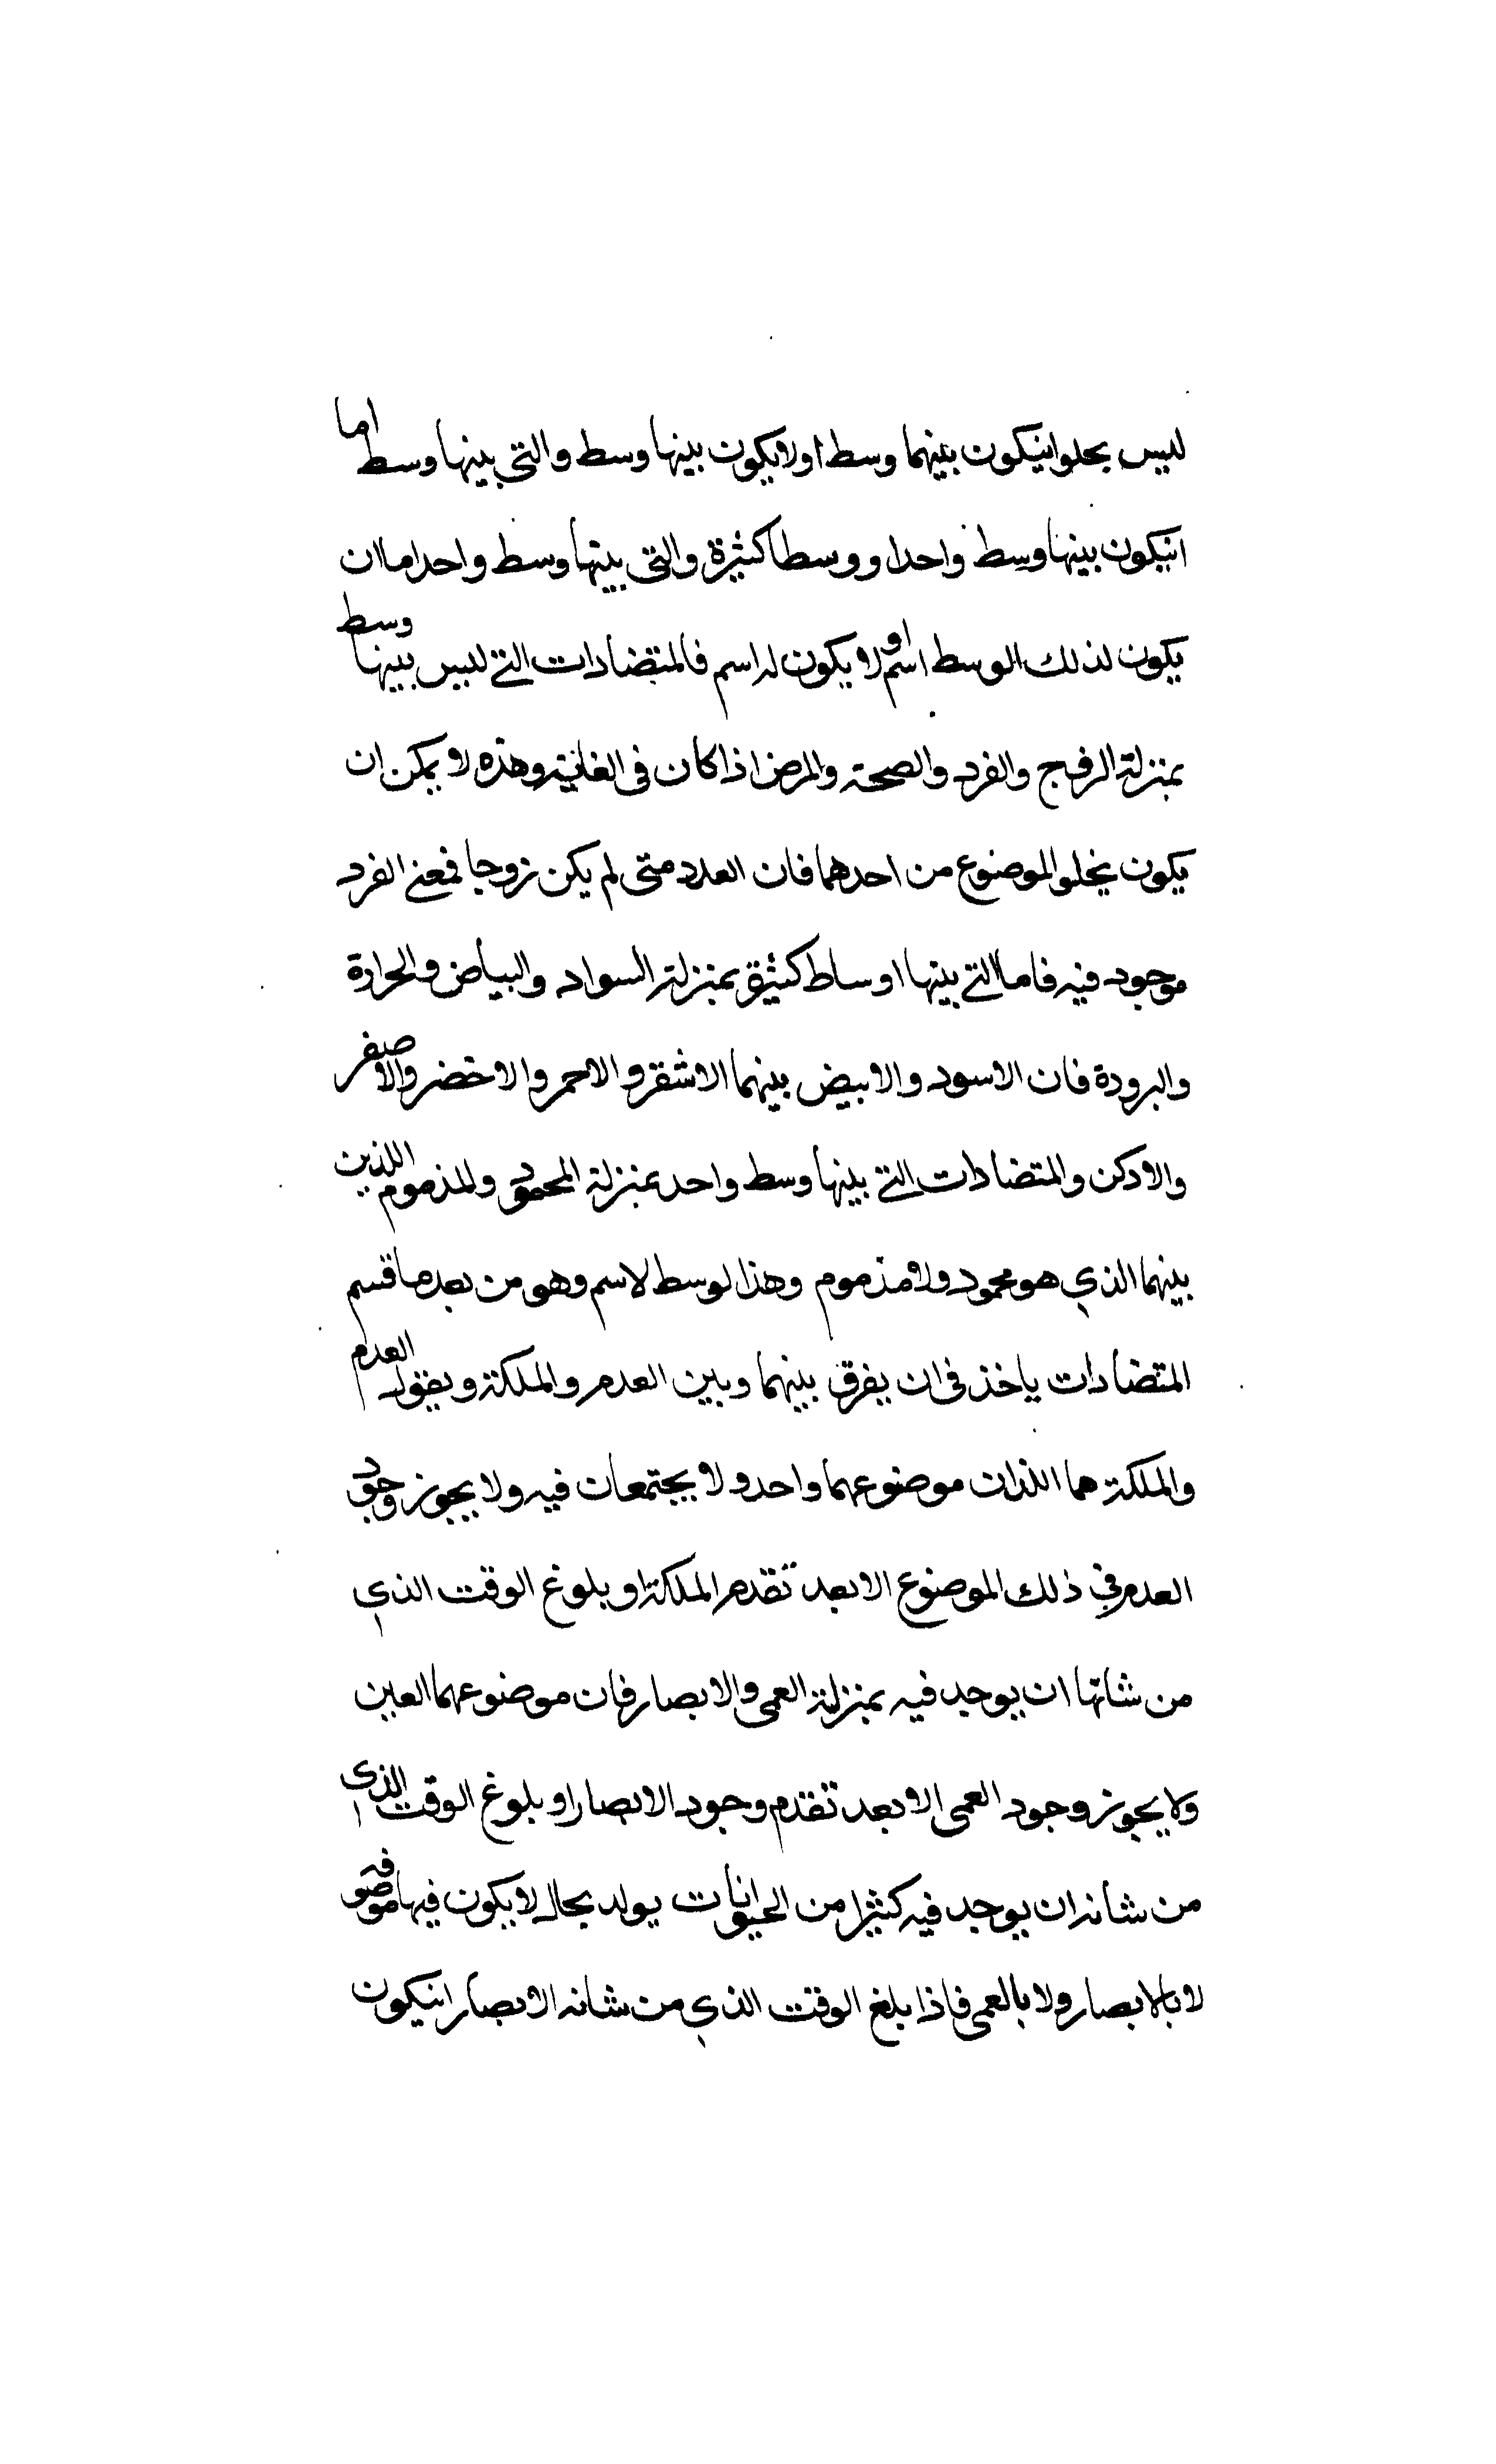 ليس يخلو انيكون بينهما وسط او لا يكون بينها وسط والتي بينها وسط اما
انيكون بينها وسط واحدا ووسطا كثيرة والتي بينها وسط واحد اما ان
يكون لذلك الوسط اسم او لا يكون له اسم فالمتضادات التي ليس بينها وسط
بمنزلة الزوج والفرد والصحة والمرض اذا كان في الغاية وهذه لا يمكن ان
يكون يخلو الموضوع من احدهما فان العدد متى لم يكن زوجا فمعنى الفرد
موجود فيه فاما التي بينها اوساط كثيرة بمنزلة السواد والبياض والحرارة
والبرودة فان الاسود والابيض بينهما الاشقر والاحمر والاخضر والاصفر
والادكن والمتضادات التي بينها وسط واحد بمنزلة المحمود والمذموم اللذين
بينهما الذي هو محمود ولا مذموم وهذا لوسط لاسم وهو من بعد ما قسم
المتضادات ياخذ في ان يفرق بينهما وبين العدم والملكة ويقول العدم
والملكة هما اللذان موضوعهما واحد ولا يجتمعان فيه ولا يجوز وجود
العدم في ذلك الموضوع الا بعد تقدم الملكة او بلوغ الوقت الذي
من شانها ان يوجد فيه بمنزلة العمى والابصار فان موضوعهما العين
ولا يجوز وجود العمى الا بعد تقدم وجود الابصار او بلوغ الوقت الذي
من شانه ان يوجد فيه كثيرا من الحيوانات يولد بحال لا يكون فيها موصوفه
لا بالابصار ولا بالعمى فاذا بلغ الوقت الذي من شانه الابصار انيكون